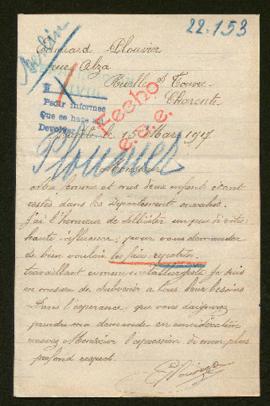 22.153
Edouard Plouvier
rue Alza
Ruelle s/ Touvre
Charente
Berlin
Fecho
Pedir informes
Que se hace
Devolver
Ruelle le 15 Mars 1917
Plouvier
Ma femme et mes deux enfants étant
restés dans les Départements envahis.
J'ai l'honneur de solliciter un peu de votre
haute influence, pour vous demander
de bien vouloir les faire rapatrier.
Travaillant en mon je suis
en mesure de subvenir à tous leurs besoins
Dans l'espérance que vous daignerez
prendre ma demande en considération
recevez Monsieur l'expression de mon plus
profond respect.